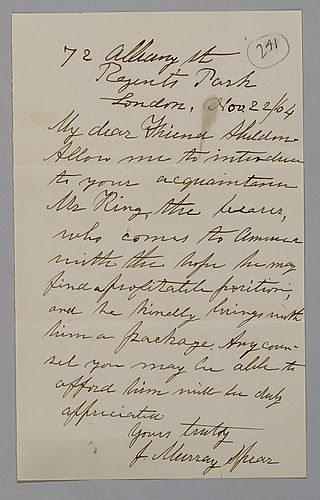 241
72 Albany St
Regents Park
London, Nov 22/64
My dear Friend Sheldon
Allow me to introduce
to your acquaintance
Mr King, the bearer,
who comes to America
with the hope he may
find a profitable position,
and he kindly brings with
him a package. Any coun-
sel you may be able to
afford him will be duly
appriciated
Yours truly
J Murray Spear